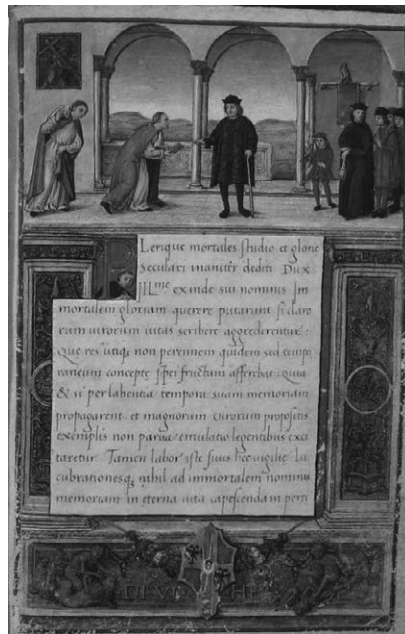 Lerique mortales studio et glorie
seculari inaniter dediti Dux
Ill^me exinde sui nominis Im
mortalem gloriam querere putarunt si claro
rum uirorum uitas scribere aggrederentur :
Que res utiq; non perennem quidem sed tempo
raneum concepte spei fructum afferebat. Quia
& si per labentia tempora suam memoriam
propagarent et magnorum uirorum propositis
exemplis non parua emulatio legentibus exci
taretur. Tamen labor iste hec uigilie lu
cubrationesq; nihil ad immortalem nominis
memoriam in eterna uita capescendam perti